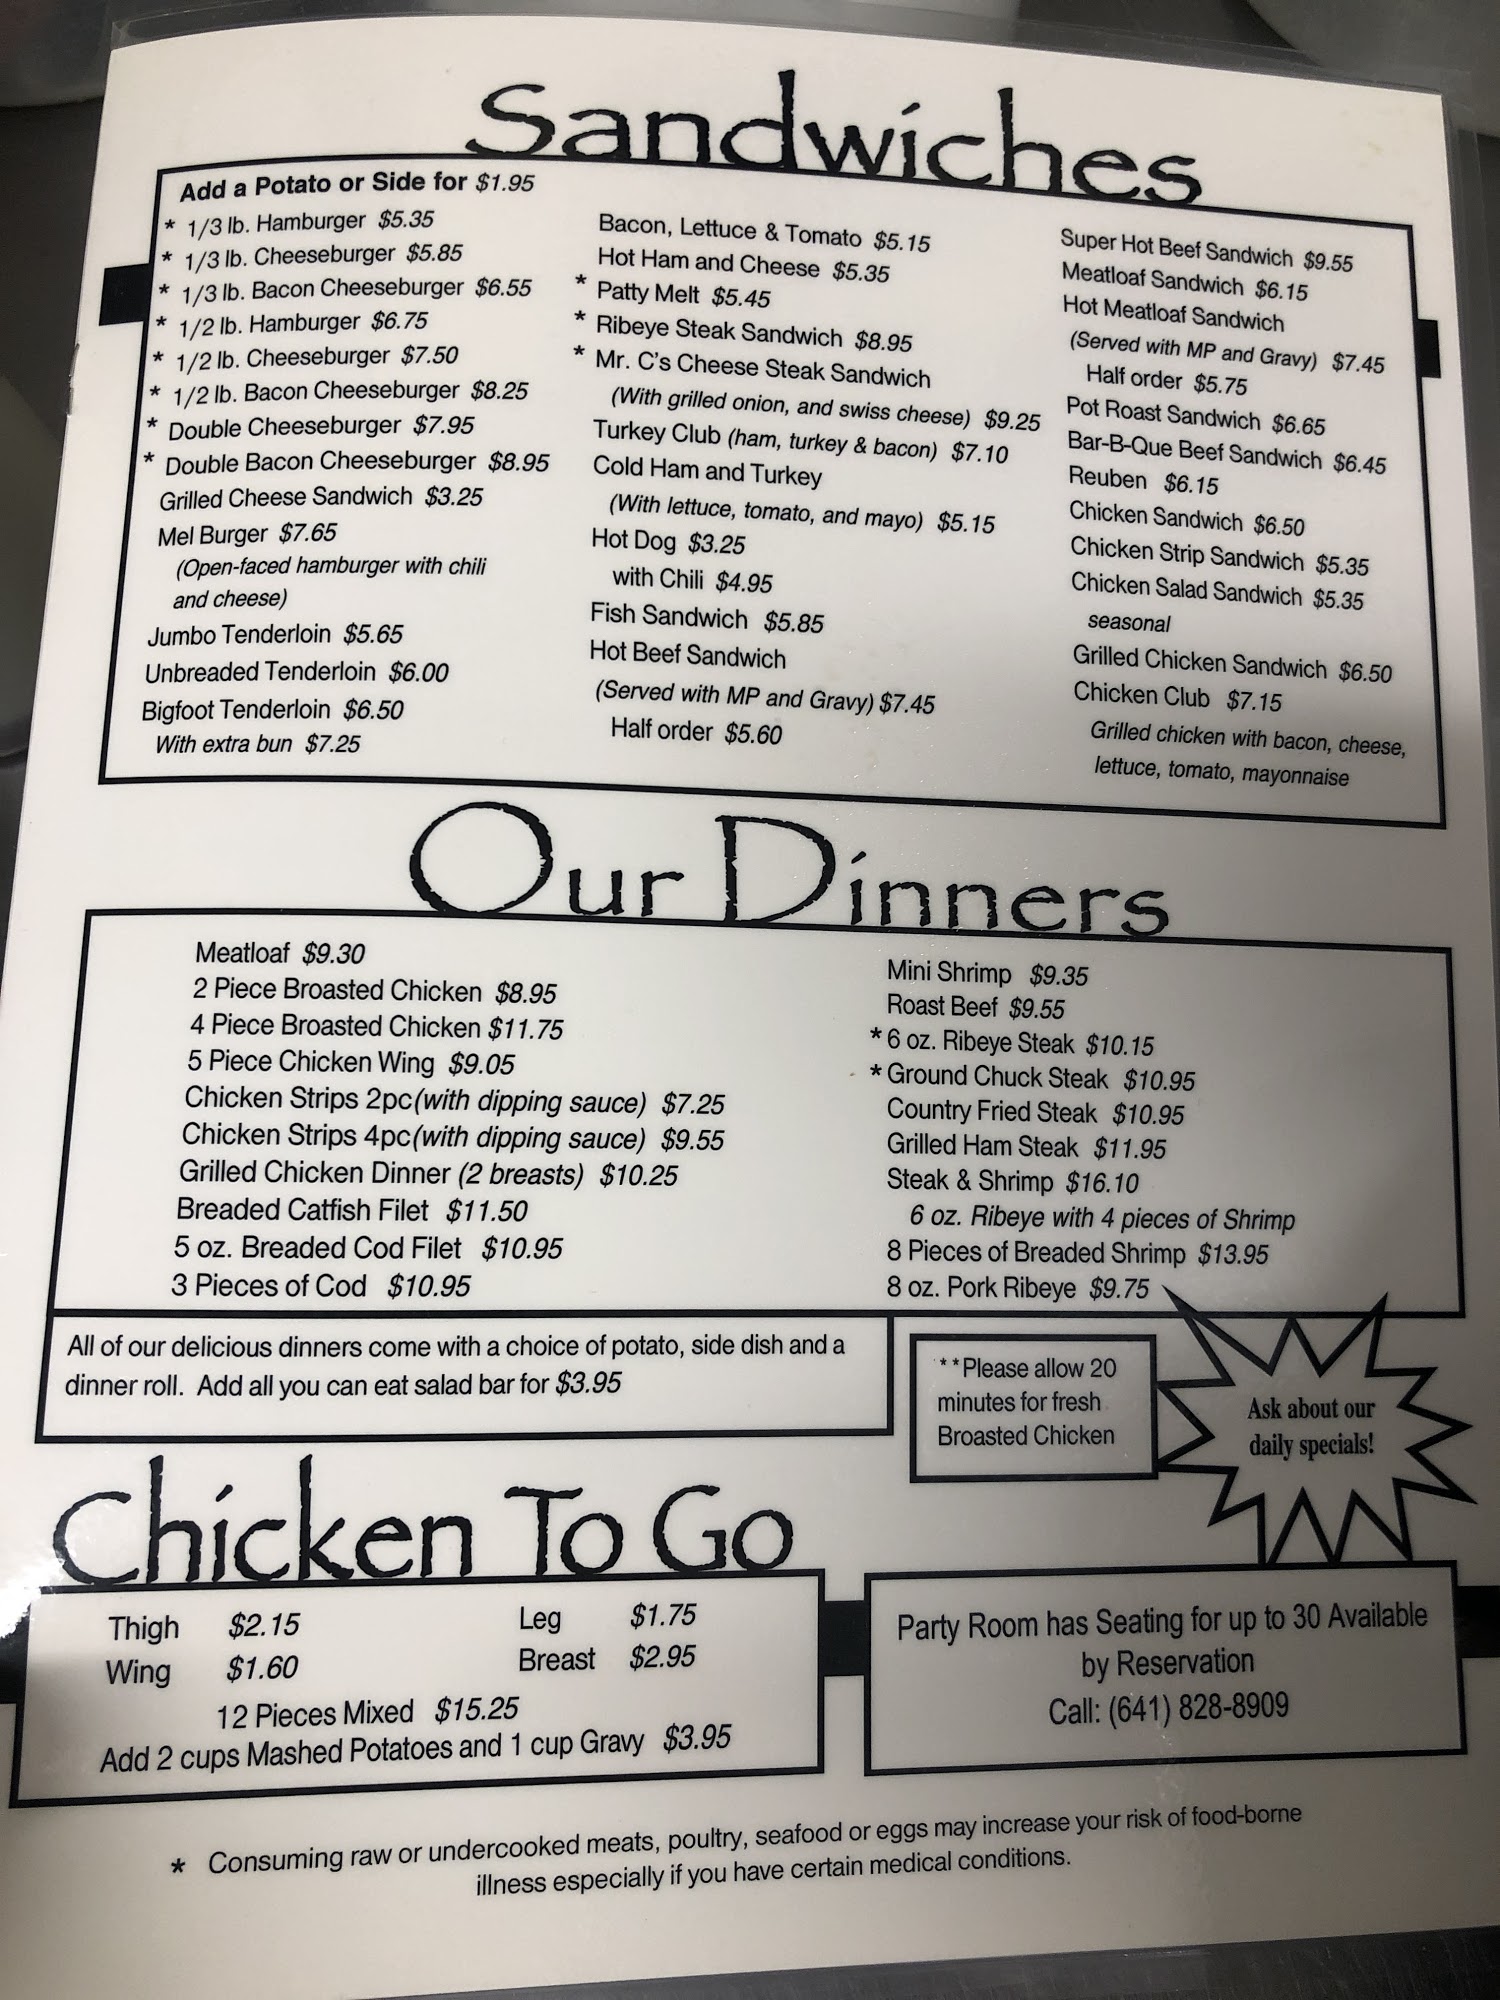 Sandwiches
Add a Potato or Side for $1.95
* 1/3 lb. Hamburger $5.35
* 1/3 lb. Cheeseburger $5.85
* 1/3 lb. Bacon Cheeseburger $6.55
* 1/2 lb. Hamburger $6.75
* 1/2 lb. Cheeseburger $7.50
* 1/2 lb. Bacon Cheeseburger $8.25
* Double Cheeseburger $7.95
* Double Bacon Cheeseburger $8.95
Grilled Cheese Sandwich $3.25
Mel Burger $7.65
(Open-faced hamburger with chili
and cheese)
Jumbo Tenderloin $5.65
Unbreaded Tenderloin $6.00
Bigfoot Tenderloin $6.50
With extra bun $7.25
Bacon, Lettuce & Tomato $5.15
Hot Ham and Cheese $5.35
* Patty Melt $5.45
* Ribeye Steak Sandwich $8.95
* Mr. C's Cheese Steak Sandwich
(With grilled onion, and swiss cheese) $9.25
Turkey Club (ham, turkey & bacon) $7.10
Cold Ham and Turkey
(With lettuce, tomato, and mayo) $5.15
Hot Dog $3.25
with Chili $4.95
Fish Sandwich $5.85
Hot Beef Sandwich
(Served with MP and Gravy) $7.45
Half order $5.60
Super Hot Beef Sandwich $9.55
Meatloaf Sandwich $6.15
Hot Meatloaf Sandwich
(Served with MP and Gravy) $7.45
Half order $5.75
Pot Roast Sandwich $6.65
Bar-B-Que Beef Sandwich $6.45
Reuben $6.15
Chicken Sandwich $6.50
Chicken Strip Sandwich $5.35
Chicken Salad Sandwich $5.35
seasonal
Grilled Chicken Sandwich $6.50
Chicken Club $7.15
Grilled chicken with bacon, cheese,
lettuce, tomato, mayonnaise
Our Dinners
Meatloaf $9.30
2 Piece Broasted Chicken $8.95
4 Piece Broasted Chicken $11.75
5 Piece Chicken Wing $9.05
Chicken Strips 2pc(with dipping sauce) $7.25
Chicken Strips 4pc(with dipping sauce) $9.55
Grilled Chicken Dinner (2 breasts) $10.25
Breaded Catfish Filet $11.50
5 oz. Breaded Cod Filet $10.95
3 Pieces of Cod $10.95
Mini Shrimp $9.35
Roast Beef $9.55
* 6 oz. Ribeye Steak $10.15
* Ground Chuck Steak $10.95
Country Fried Steak $10.95
Grilled Ham Steak $11.95
Steak & Shrimp $16.10
6 oz. Ribeye with 4 pieces of Shrimp
8 Pieces of Breaded Shrimp $13.95
8 oz. Pork Ribeye $9.75
All of our delicious dinners come with a choice of potato, side dish and a
dinner roll. Add all you can eat salad bar for $3.95
**Please allow 20
minutes for fresh
Broasted Chicken
Ask about our
daily specials!
Chicken To Go
Thigh $2.15
Wing $1.60
Leg $1.75
Breast $2.95
12 Pieces Mixed $15.25
Add 2 cups Mashed Potatoes and 1 cup Gravy $3.95
Party Room has Seating for up to 30 Available
by Reservation
Call: (641) 828-8909
* Consuming raw or undercooked meats, poultry, seafood or eggs may increase your risk of food-borne
illness especially if you have certain medical conditions.